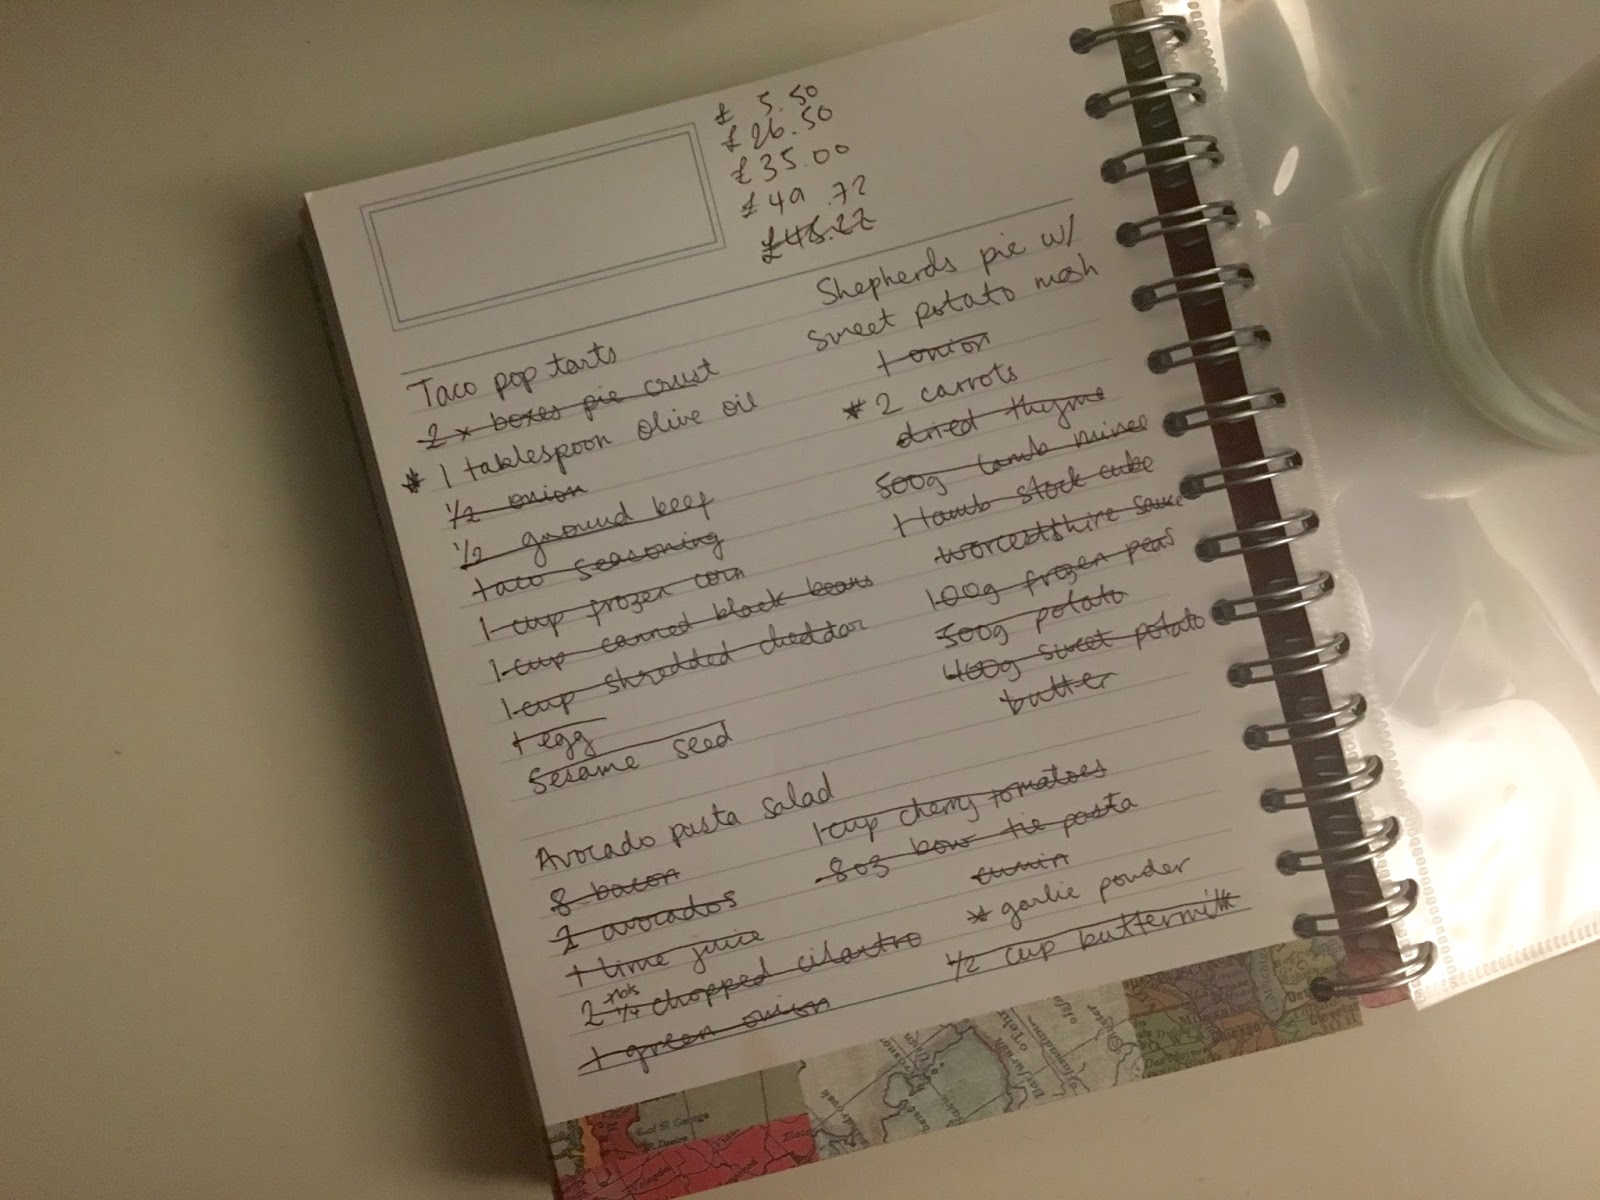 £ 5.50
£26.50
£35.00
£49.72
Taco pop tarts
2 x boxes pie crust
* 1 tablespoon olive oil
1/2 onion
1/2 ground beef
taco seasoning
1 cup frozen corn
1 cup canned black beans
1 cup shredded cheddar
1 egg
sesame seed
Shepherds pie w/
sweet potato mash
1 onion
* 2 carrots
dried thyme
500g lamb mince
1 lamb stock cube
worcestshire sauce
100g frozen peas
500g potato
400g sweet potato
butter
Avocado pasta salad
8 bacon
2 avocados
1 lime juice
2 1/4 chopped cilantro
1 green onion
1 cup cherry tomatoes
8oz bow tie pasta
cumin
* garlic powder
1/2 cup buttermilk